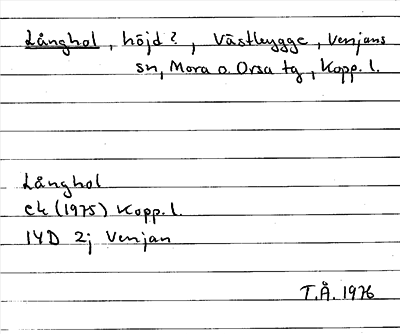 Långhol, höjd?, Västbygge, Venjans
sn, Mora o. Orsa tg, Kopp. l.
Långhol
ek (1975) Kopp. l.
14D 2j Venjan
T.Å. 1976